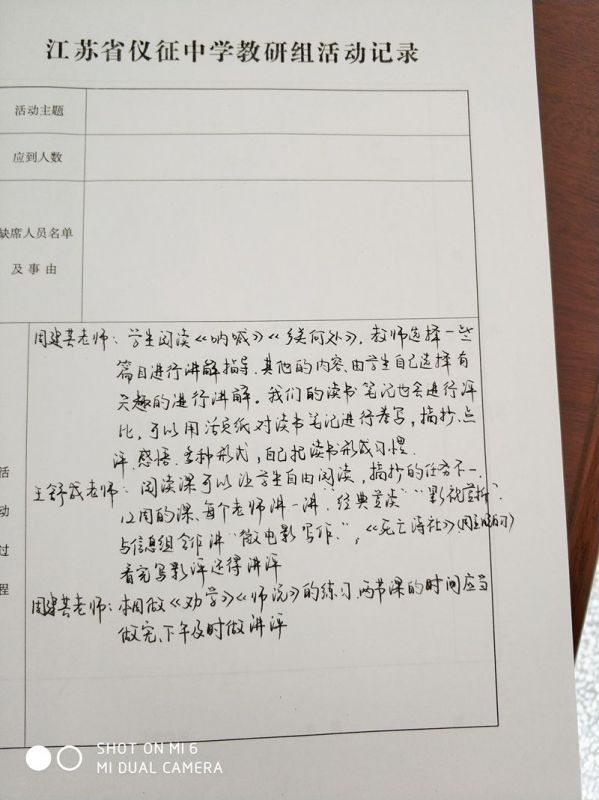 江苏省仪征中学教研组活动记录
活动主题
应到人数
缺席人员名单
及事由
活动过程
周建英老师：学生阅读《呐喊》《乡关何处》，教师选择一些
篇目进行讲解指导，其他的内容，由学生自己选择有
兴趣的进行讲解。我们的读书笔记也会进行评
比，可以用活页纸对读书笔记进行书写，摘抄、点
评、感悟，多种形式，自己把读书形成习惯。
王舒成老师：阅读课可以让学生自由阅读，摘抄的任务不一。
12周的课，每个老师讲一讲"经典意读""影视赏析"。
与信息组合作讲"微电影写作"，《死亡诗社》
看完写影评还得讲评
周建英老师：本周做《劝学》《师说》的练习，两节课的时间应当
做完，下午及时做讲评
SHOT ON MI 6
MI DUAL CAMERA